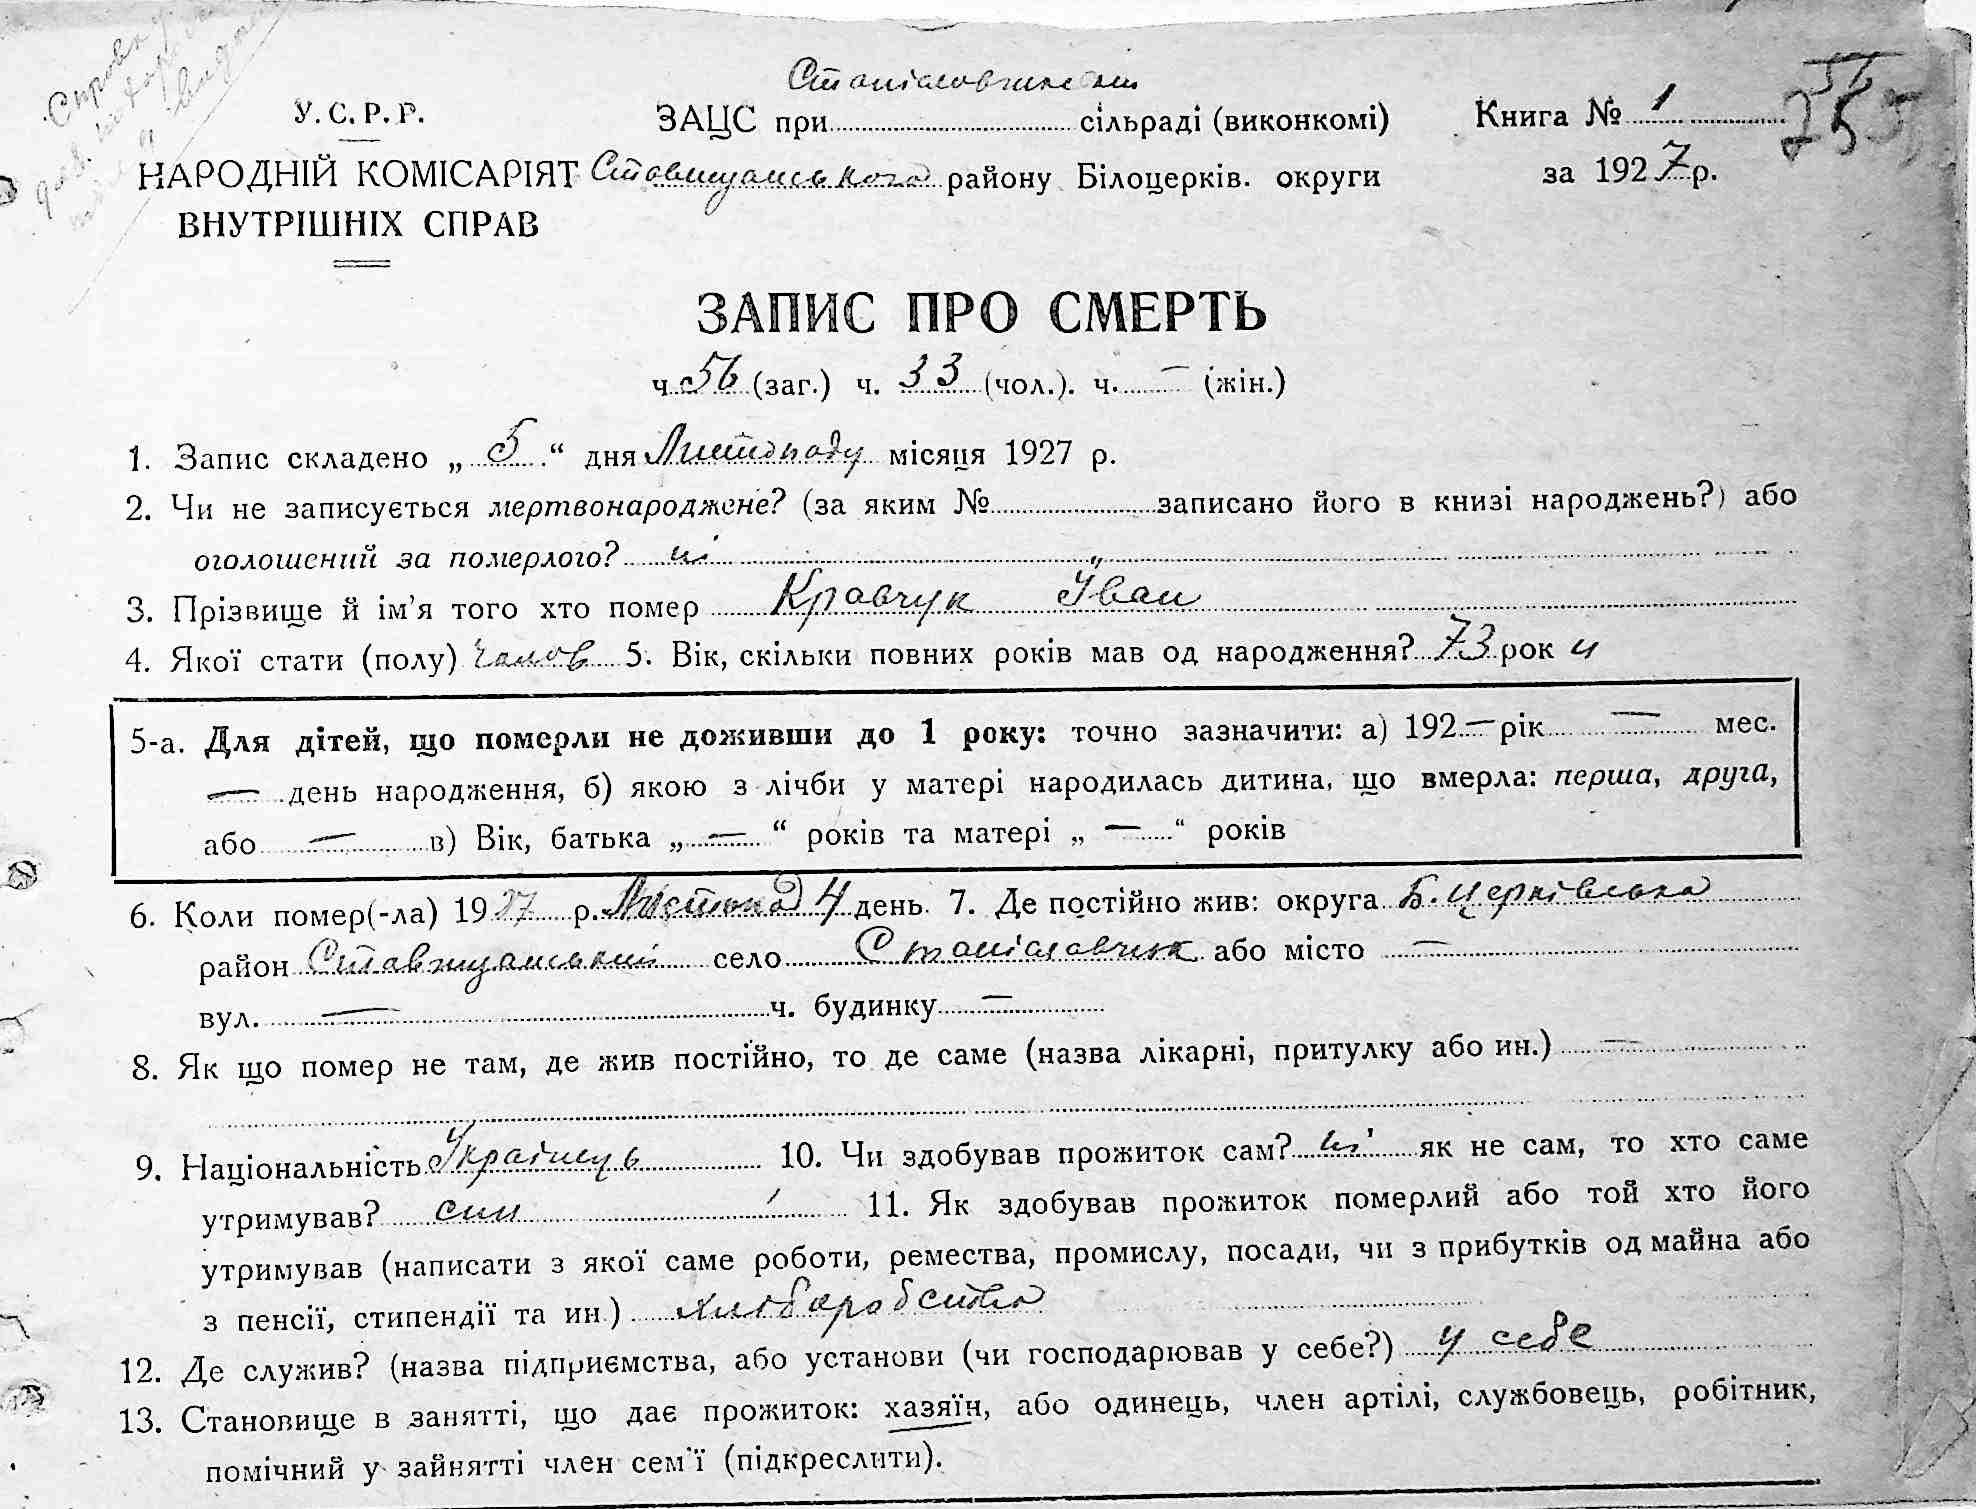 Справку
видано
Станіславчикскій
У. С. Р. Р. ЗАЦС при сільраді (виконкомі) Книга № 1
НАРОДНІЙ КОМІСАРІЯТ Ставищанського району Білоцерків. округи за 1927 р.
ВНУТРІШНІХ СПРАВ
ЗАПИС ПРО СМЕРТЬ
ч. 56 (заг.) ч. 33 (чол.). ч. — (жін.)
1. Запис складено „ 5 “ дня Листопаду місяця 1927 р.
2. Чи не записується мертвонароджене? (за яким № записано його в книзі народжень?) або
оголошений за померлого? ні „
3. Прізвище й ім'я того хто помер Кравчук Іван
4. Якої стати (полу) чолов 5. Вік, скільки повних років мав од народження? 73 рок и
5-а. Для дітей, що померли не доживши до 1 року: точно зазначити: а) 192 — рік — мес.
— день народження, б) якою з лічби у матері народилась дитина, що вмерла: перша, друга,
або — в) Вік, батька „ — “ років та матері „ — “ років
6. Коли помер(-ла) 1927 р. Листопад 4 день. 7. Де постійно жив: округа Б. Церківська
район Ставищанський село Станіславчик або місто —
вул. — ч. будинку —
8. Як що помер не там, де жив постійно, то де саме (назва лікарні, притулку або ин.) —
9. Національність Українець 10. Чи здобував прожиток сам? ні як не сам, то хто саме
утримував? син 11. Як здобував прожиток померлий або той хто його
утримував (написати з якої саме роботи, ремества, промислу, посади, чи з прибутків од майна або
з пенсії, стипендії та ин.) хліборобство
12. Де служив? (назва підприємства, або установи (чи господарював у себе?) у себе
13. Становище в занятті, що дає прожиток: хазяїн, або одинець, член артілі, службовець, робітник,
помічний у зайнятті член сем'ї (підкреслити).